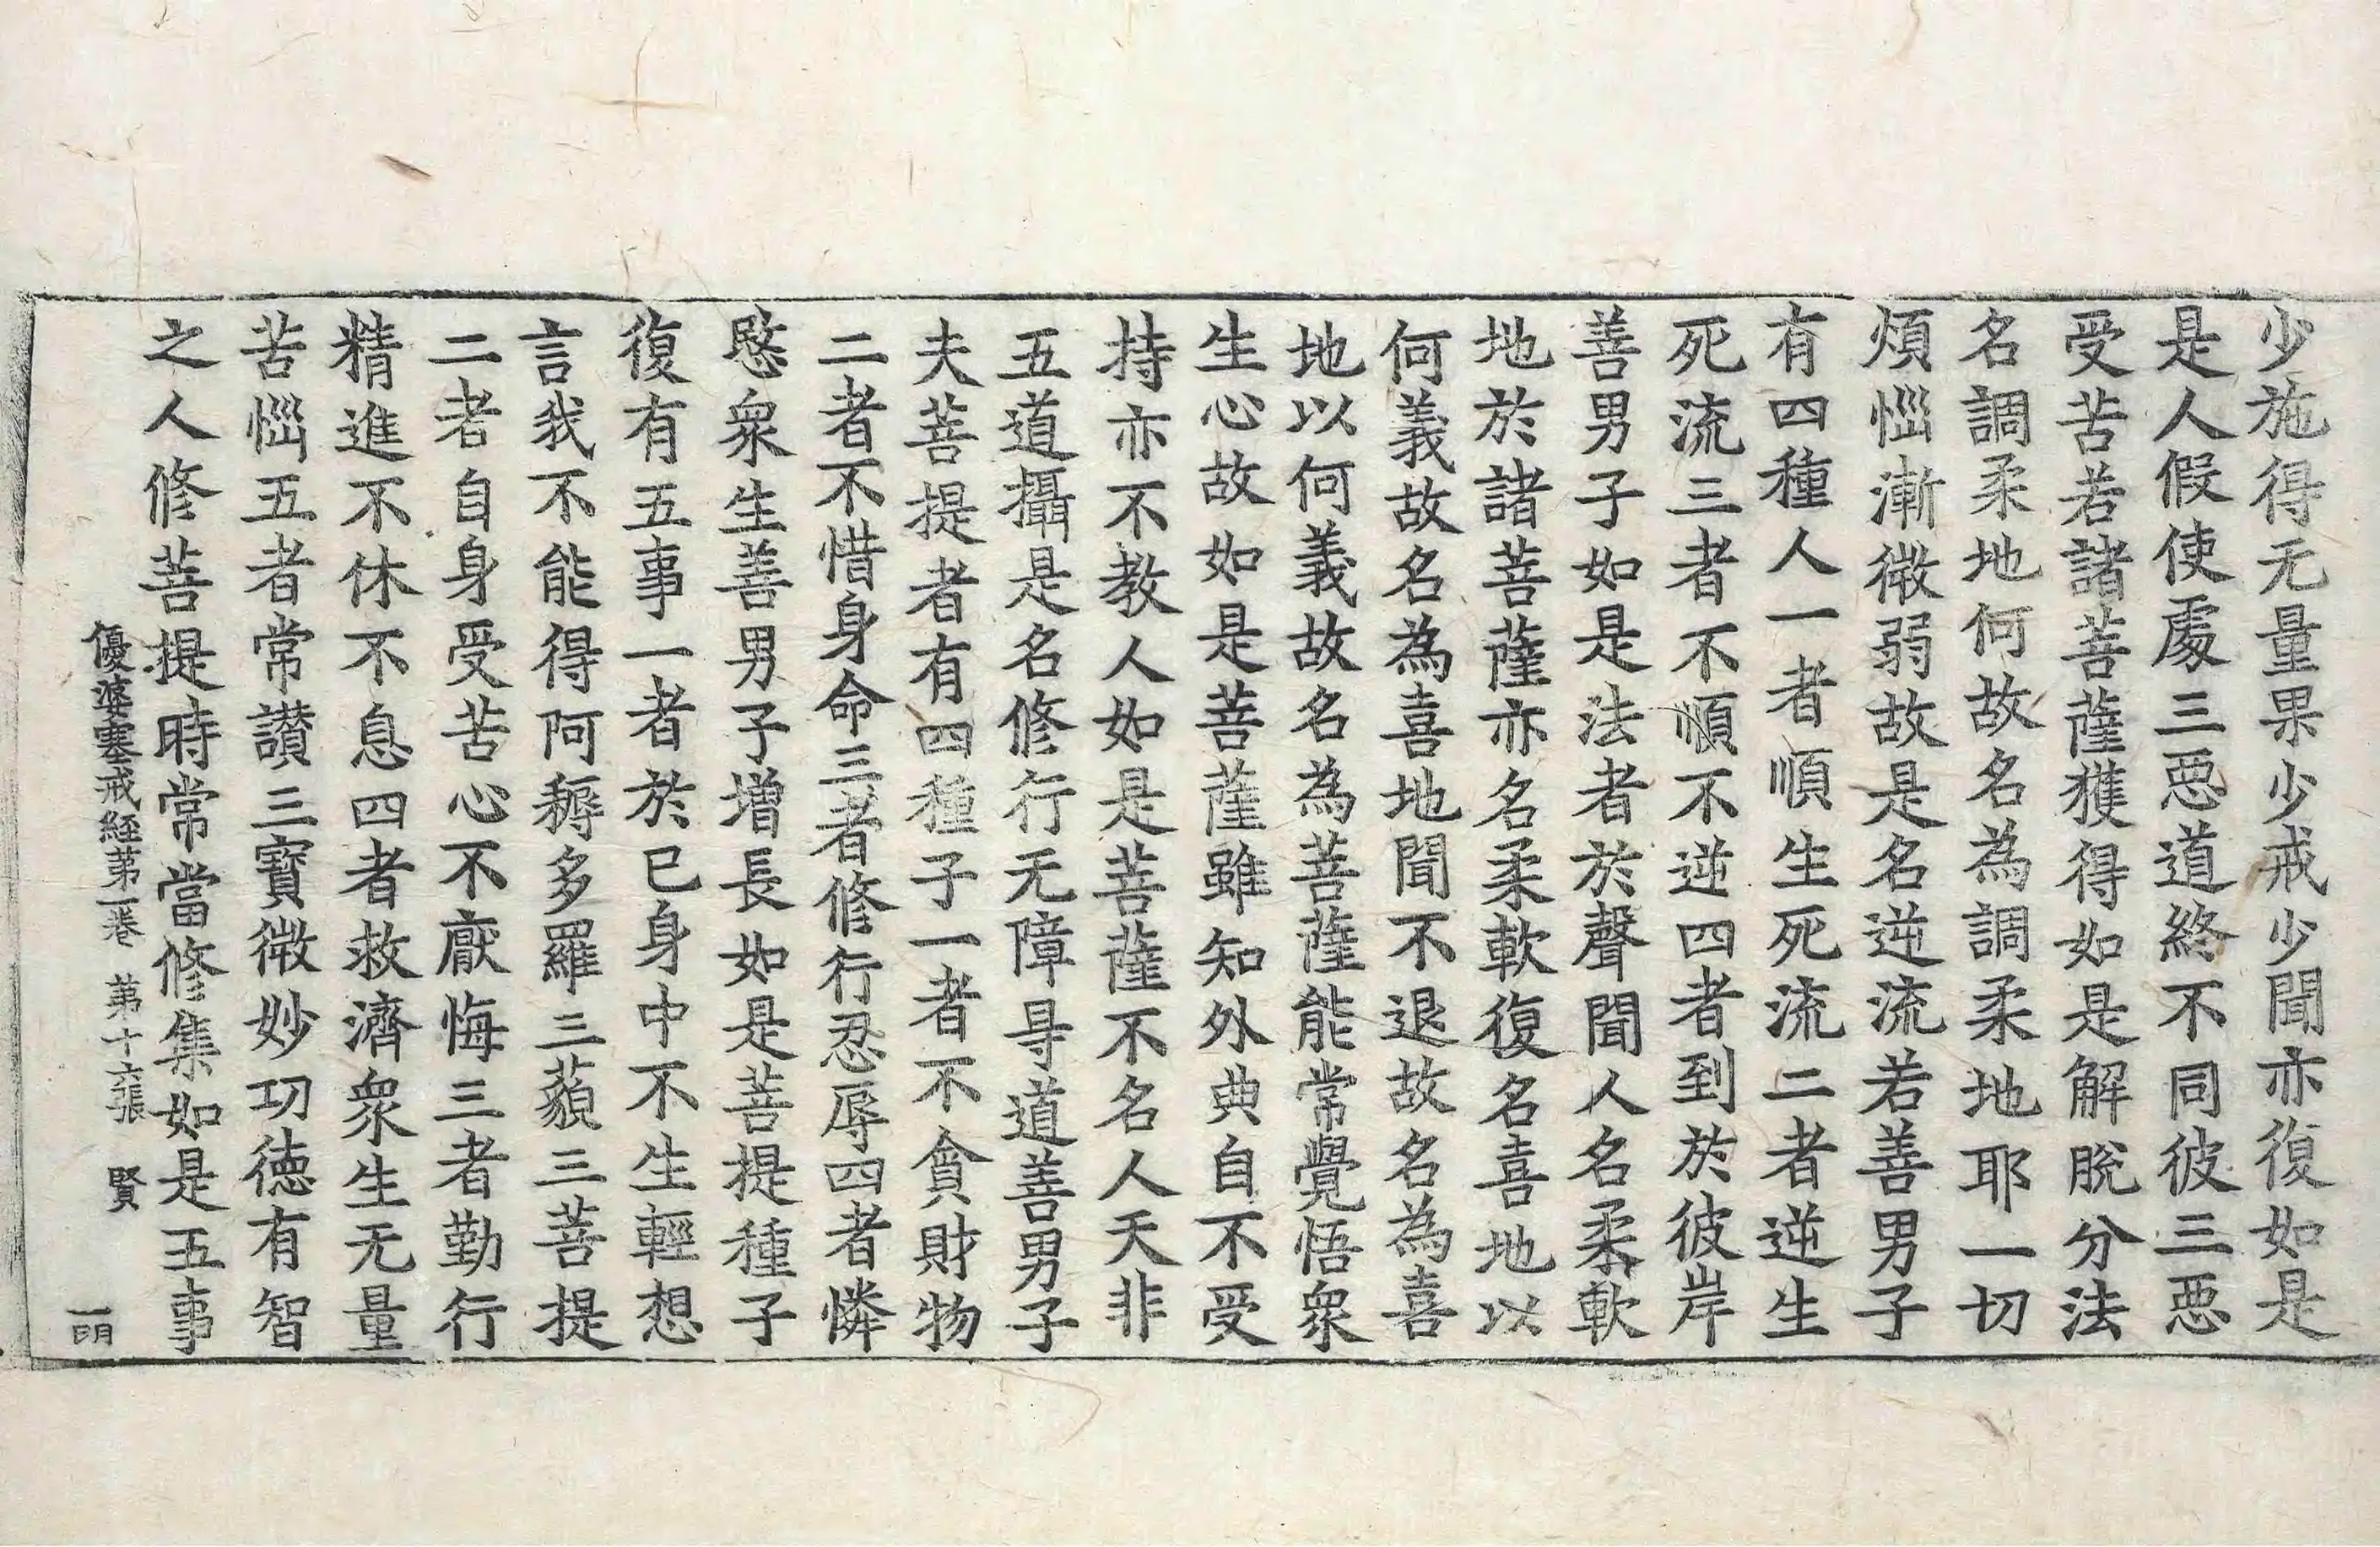 少施得无量果少戒少聞亦復如是
是人假使處三惡道終不同彼三惡
受苦若諸菩薩獲得如是解脫分法
名調柔地何故名為調柔地耶一切
煩惱漸微弱故是名逆流若善男子
有四種人一者順生死流二者逆生
死流三者不順不逆四者到於彼岸
善男子如是法者於聲聞人名柔軟
地於諸菩薩亦名柔軟復名喜地以
何義故名為喜地聞不退故名為喜
地以何義故名為菩薩能常覺悟衆
生心故如是菩薩雖知外典自不受
持亦不教人如是菩薩不名人天非
五道攝是名修行无障㝵道善男子
夫菩提者有四種子一者不貪財物
二者不惜身命三者修行忍辱四者憐
愍衆生善男子增長如是菩提種子
復有五事一者於已身中不生輕想
言我不能得阿耨多羅三藐三菩提
二者自身受苦心不厭悔三者勤行
精進不休不息四者救濟衆生无量
苦惱五者常讃三寶微妙功徳有智
之人修菩提時常當修集如是五事
優婆塞戒経苐一卷 苐十六張 賢